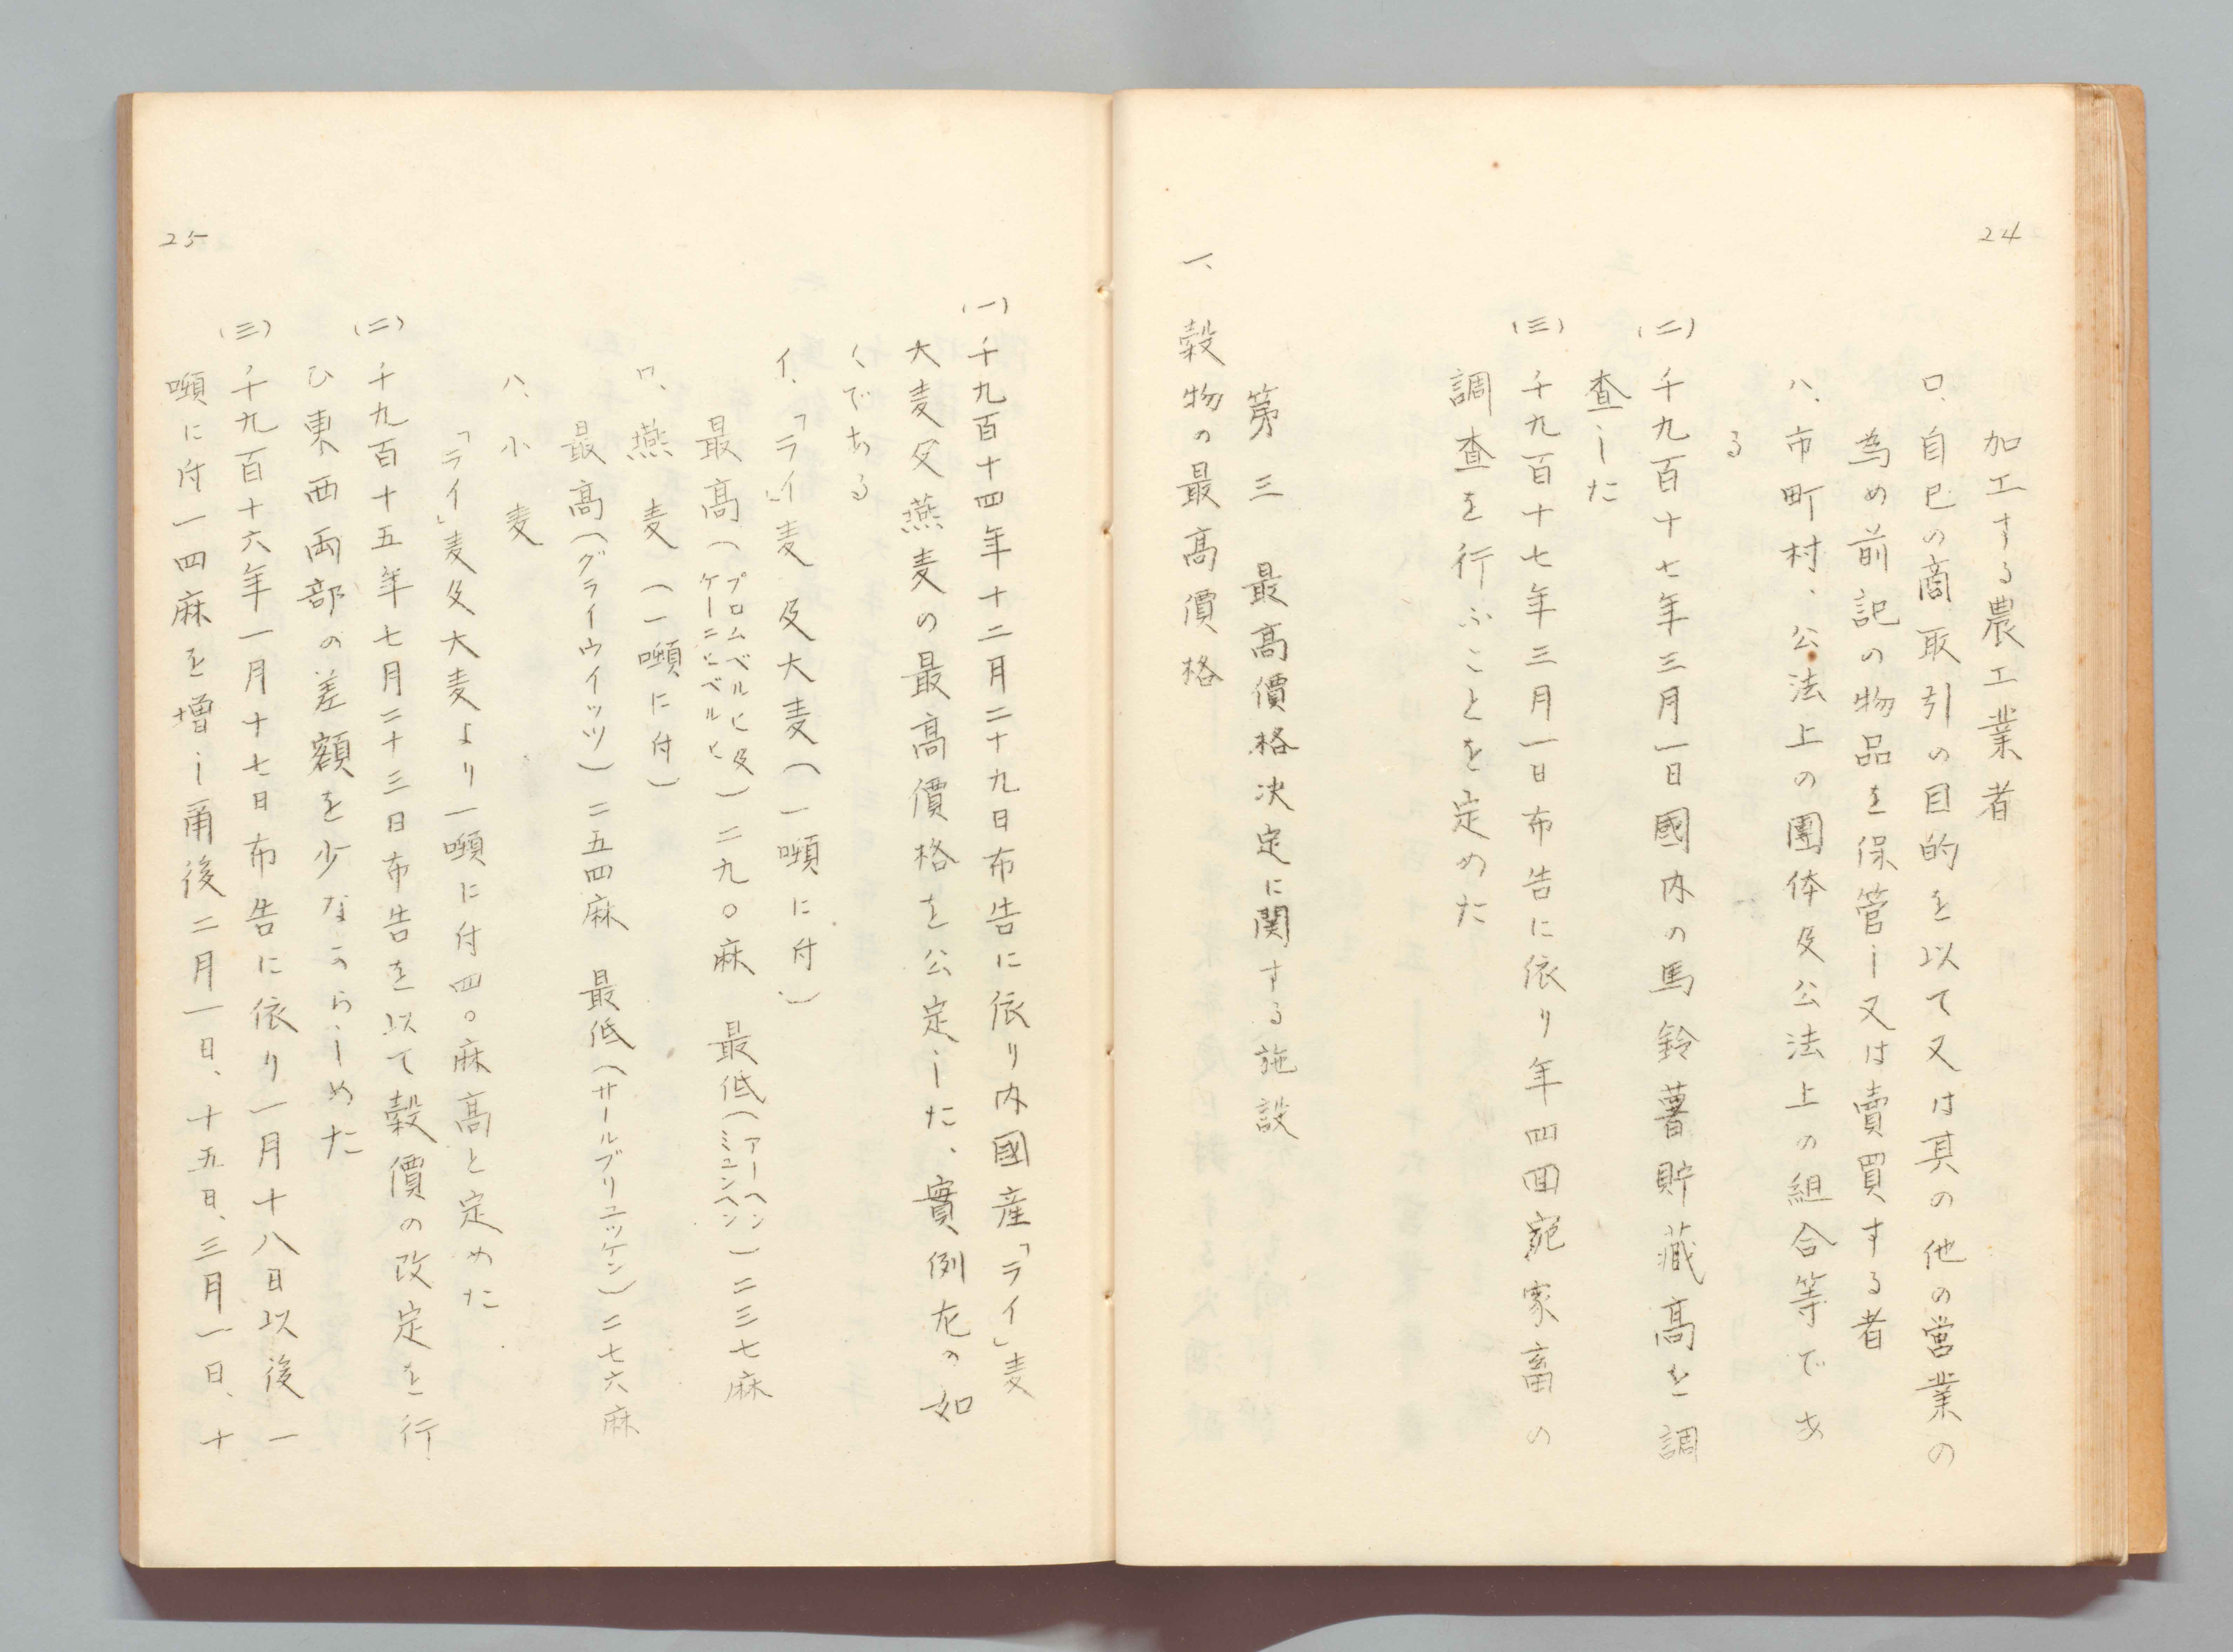 24
加工する農工業者
ロ、自己の商取引の目的を以て又は其の他の営業の
為め前記の物品を保管し又は賣買する者
ハ、市町村、公法上の團体及公法上の組合等であ
る
(二)千九百十七年三月一日國内の馬鈴薯貯藏高を調
査した
(三)千九百十七年三月一日布告に依り年四回宛家畜の
調査を行ふことを定めた
第三 最高價格決定に関する施設
一、穀物の最高價格
25
(一)千九百十四年十二月二十九日布告に依り内國産「ライ」麦
大麦及燕麦の最高價格を公定した、實例左の如
くである
イ、「ライ」麦及大麦(一噸に付)
最高(ブロムベルヒ及ケーニヒベルヒ)二九〇麻 最低(アーヘンミュンヘン)二三七麻
ロ、燕麦(一噸に付)
最高(グライウイッツ)二五四麻 最低(サールブリュッケン)二七六麻
ハ、小麦
「ライ」麦及大麦より一噸に付四〇麻高と定めた
(二)千九百十五年七月二十三日布告を以て穀價の改定を行
ひ東西両部の差額を少なからしめた
(三)千九百十六年一月十七日布告に依り一月十八日以後一
噸に付一四麻を増し爾後二月一日、十五日、三月一日、十